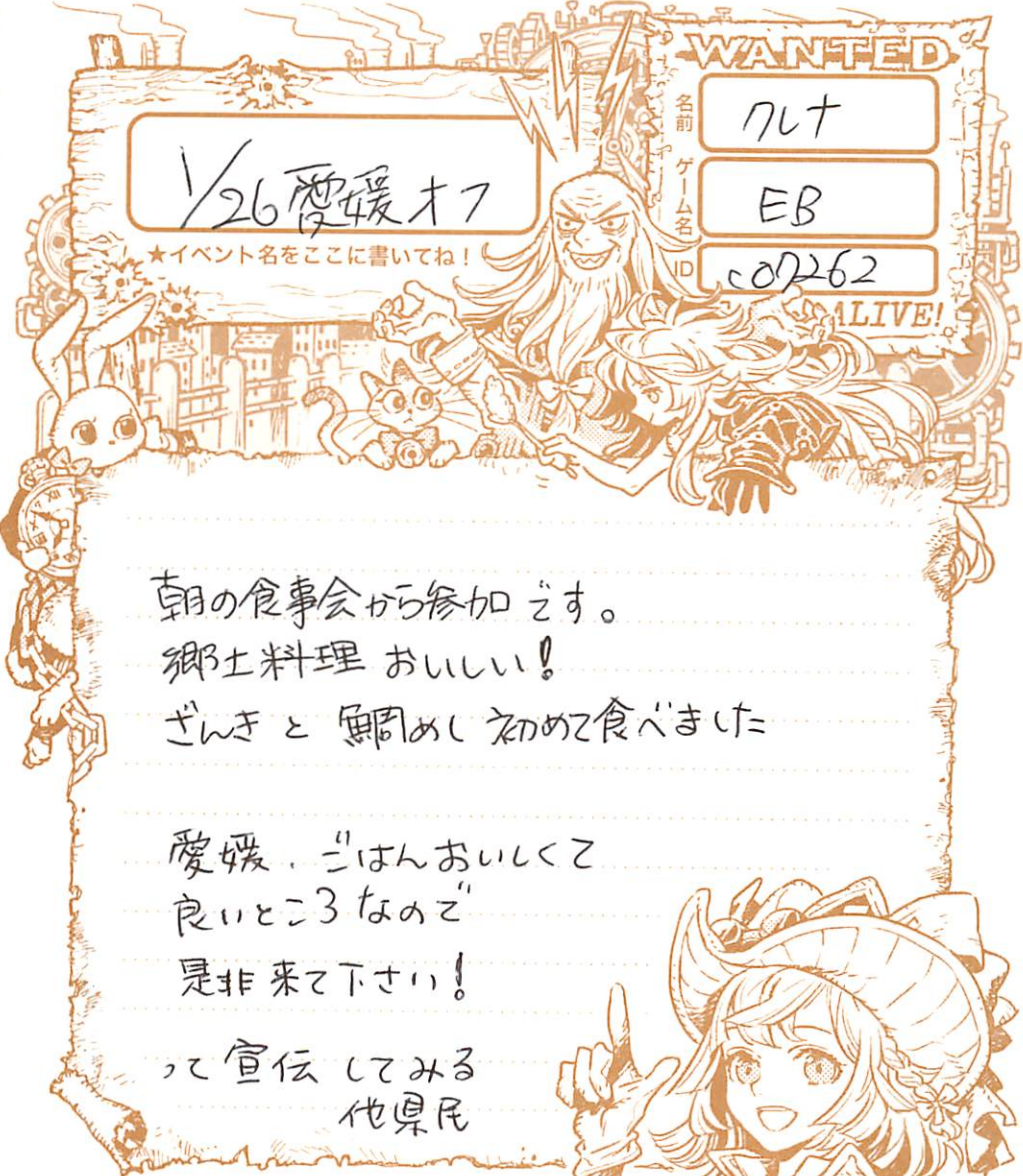 1/26 愛媛オフ
★イベント名をここに書いてね！
WANTED
名前
クレナ
ゲーム名
EB
ID
c07262
ALIVE!
朝の食事会から参加です。
郷土料理 おいしい！
ざんき と 鯛めし 初めて食べました
愛媛、ごはんおいしくて
良いところなので
是非 来て下さい！
って 宣伝 してみる
他県民